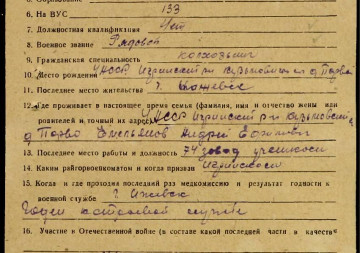 6. На ВУС 133
7. Должностная квалификация Нет
8. Военное звание Рядовой
9. Гражданская специальность колхозник
10. Место рождения УАССР Игринский р-н
11. Последнее место жительства г. Ижевск
12. Где проживает в настоящее время семья (фамилия, имя и отчество жены или
родителей и точный их адрес) УАССР Игринский р-н
Андрей
13. Последнее место работы и должность 74 завод
14. Каким райгорвоенкоматом и когда призван Игринским
15. Когда и где проходил последний раз медкомиссию и результат годности к
военной службе г. Ижевск
Годен к строевой службе
16. Участие в Отечественной войне (в составе какой последней части и качестве